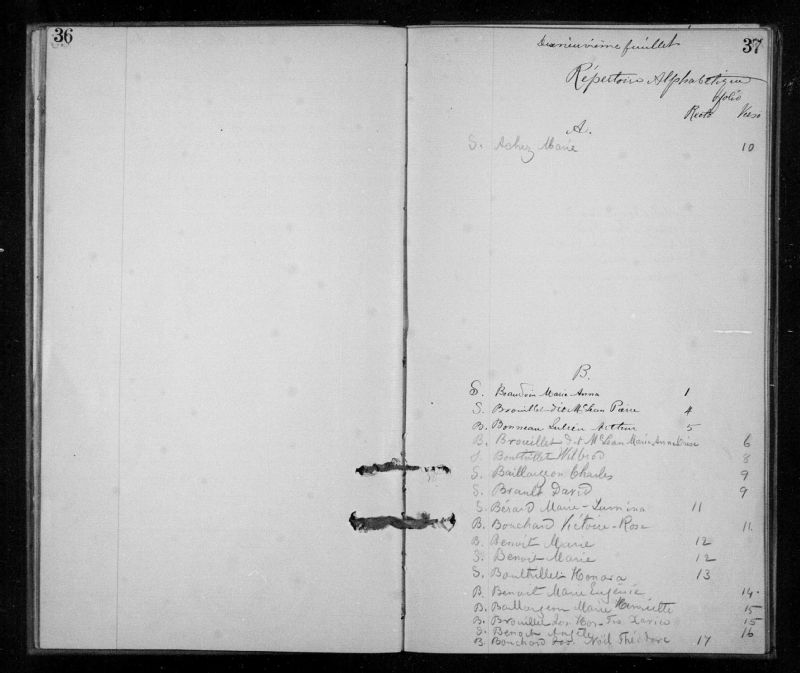 36
37
Dixneuvième feuillet
Répertoire Alphabétique
folio
Recto Verso
A.
S. Achez Marie 10
B.
S. Beaudoin Marie Anna 1
S. Brouillet dit McLean Pierre 4
B. Bonneau Lucien Arthur 5
B. Brouillet dit McLean Marie Anna 6
S. Bouthillet Wilbrod 8
S. Baillargeon Charles 9
S. Brault David 9
S. Bérard Marie-Lumina 11
B. Bouchard Victoire-Rose 11
B. Benoit Marie 12
S. Benoit Marie 12
S. Bouthillet Honora 13
B. Benoit Marie Eugénie 14
B. Baillargeon Marie Henriette 15
B. Brouillet Frs Xavier 15
S. Benoit Angèle 16
B. Bouchard Jos. Noël Théodore 17